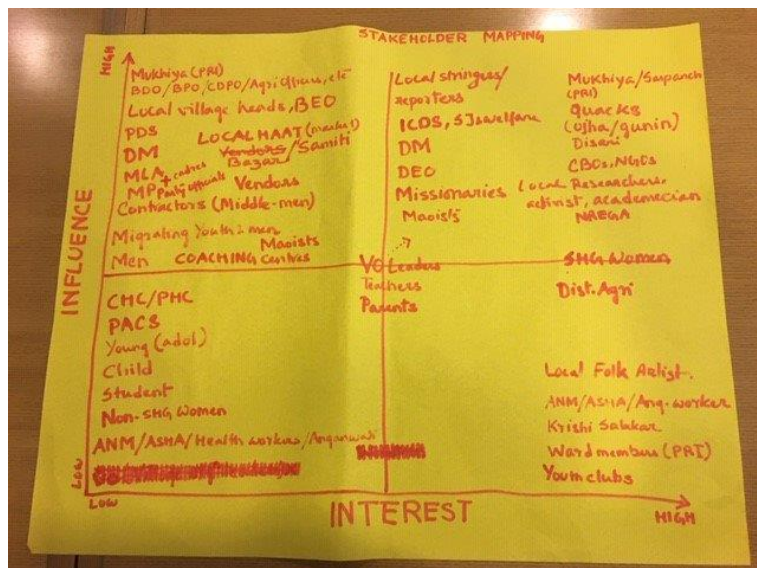 STAKEHOLDER MAPPING
HIGH
Mukhiya (PRI)
BDO/BPO/CDPO/Agri Officers, etc
Local village heads, BEO
PDS LOCAL HAAT (market)
DM Vendors/Samiti
Bazar
MLA + cadres
MP Party officials Vendors
Contractors (Middle-men)
Migrating Youth & men
Maoists
Men COACHING Centres
INFLUENCE
Local stringers/
reporters
ICDS, SJ & welfare
DM
DEO
Missionaries
Maoists
Mukhiya/Sarpanch
(PRI)
Quacks
(Ojha/gunin)
Disari
CBOs, NGOs
Local Researchers,
activist, academecian
NREGA
VO Leaders
Teachers
Parents
SHG Women
Dist. Agri
CHC/PHC
PACS
Young (adol)
Child
Student
Non-SHG Women
ANM/ASHA/Health workers/Anganwadi
Local Folk Artist.
ANM/ASHA/Ang-worker
Krishi Salahkar
Ward members (PRI)
Youth clubs
LOW
LOW
INTEREST
HIGH